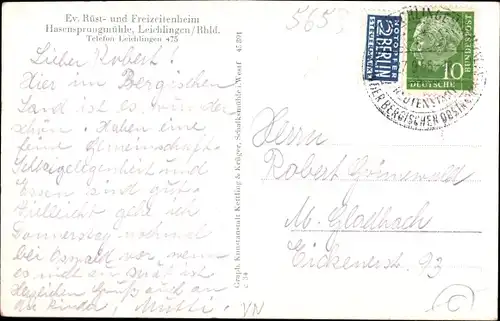 Ev. Rüst- und Freizeitenheim
Hasensprungmühle, Leichlingen/Rhld.
Telefon Leichlingen 475
Lieber Robert!
Hier im Bergischen
Land ist es wunder
schön. Haben eine
feine Gemeinschaft.
Schlafgelegenheit und
Essen sind gut.
Vielleicht gehe ich
Donnerstag nochmal
bei Oswald vor, wenn
es nicht zu spät ist
Herzlichen Gruß auch an
die Kinder, Mutti.
VN
Graph. Kunstanstalt Kettling & Krüger, Schalksmühle i. Westf.
c 34
5655
NOTOPFER
2 BERLIN
STEUERMARKE
DEUTSCHE
BUNDESPOST
10
DER BERGISCHEN OBST
BLÜTENSTADT
Herrn
Robert Grünewald
M. Gladbach
Eickenerstr. 93
C